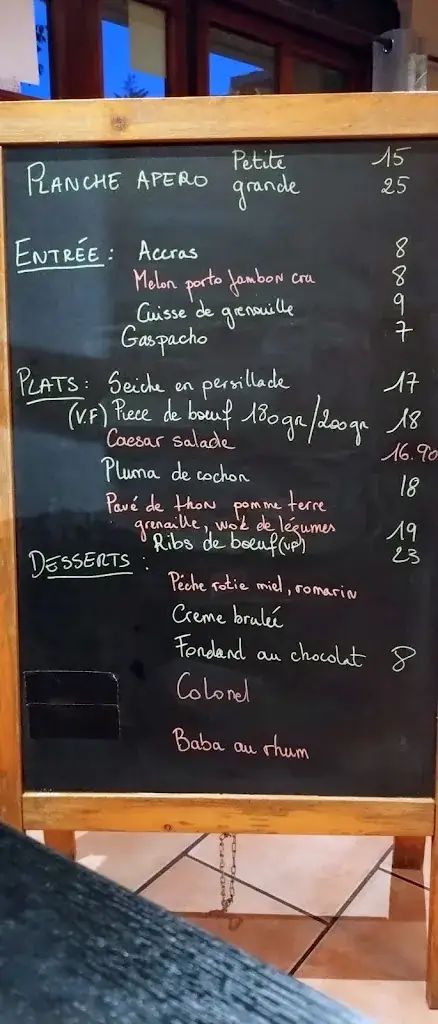 Petite 15
PLANCHE APERO grande 25
ENTRÉE : Accras 8
Melon porto Jambon cru 8
Cuisse de grenouille 9
Gaspacho 7
PLATS : Seiche en persillade 17
(V.F) Piece de bœuf 180gr/200gr 18
Caesar salade 16.90
Pluma de cochon 18
Pavé de thon pomme terre
grenaille, wok de légumes 19
Ribs de bœuf (VF) 23
DESSERTS :
Pêche rotie miel, romarin
Creme brulée
Fondand au chocolat 8
Colonel
Baba au rhum